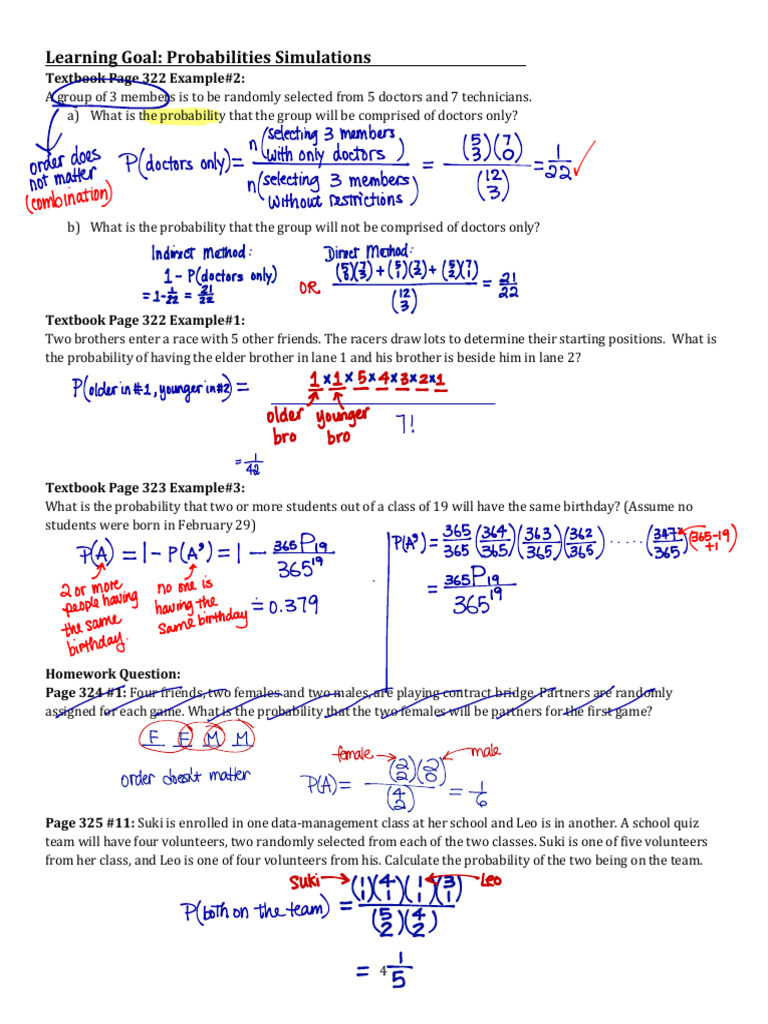 Learning Goal: Probabilities Simulations
Textbook Page 322 Example#2:
A group of 3 members is to be randomly selected from 5 doctors and 7 technicians.
a) What is the probability that the group will be comprised of doctors only?
order does
not matter
(combination)
P(doctors only) = n(selecting 3 members with only doctors) / n(selecting 3 members without restrictions) = (5 3)(7 0) / (12 3) = 1/22 ✓
b) What is the probability that the group will not be comprised of doctors only?
Indirect Method:
1 - P(doctors only)
= 1 - 1/22 = 21/22
OR
Direct Method:
(5 0)(7 3) + (5 1)(7 2) + (5 2)(7 1) / (12 3) = 21/22
Textbook Page 322 Example#1:
Two brothers enter a race with 5 other friends. The racers draw lots to determine their starting positions. What is
the probability of having the elder brother in lane 1 and his brother is beside him in lane 2?
P(older in #1, younger in #2) = 1 × 1 × 5 × 4 × 3 × 2 × 1 / 7!
older bro
younger bro
= 1/42
Textbook Page 323 Example#3:
What is the probability that two or more students out of a class of 19 will have the same birthday? (Assume no
students were born in February 29)
P(A) = 1 - P(A') = 1 - 365P19 / 365^19
≐ 0.379
2 or more
people having
the same
birthday.
no one is
having the
same birthday
P(A') = 365/365 (364/365)(363/365)(362/365) ..... (347/365)
(365-19)
+1
= 365P19 / 365^19
Homework Question:
Page 324 #1: Four friends, two females and two males, are playing contract bridge. Partners are randomly
assigned for each game. What is the probability that the two females will be partners for the first game?
F F M M
order doesn't matter
female
male
P(A) = (2 2)(2 0) / (4 2) = 1/6
Page 325 #11: Suki is enrolled in one data-management class at her school and Leo is in another. A school quiz
team will have four volunteers, two randomly selected from each of the two classes. Suki is one of five volunteers
from her class, and Leo is one of four volunteers from his. Calculate the probability of the two being on the team.
Suki
Leo
P(both on the team) = (1 1)(4 1)(1 1)(3 1) / (5 2)(4 2)
= 1/5
4